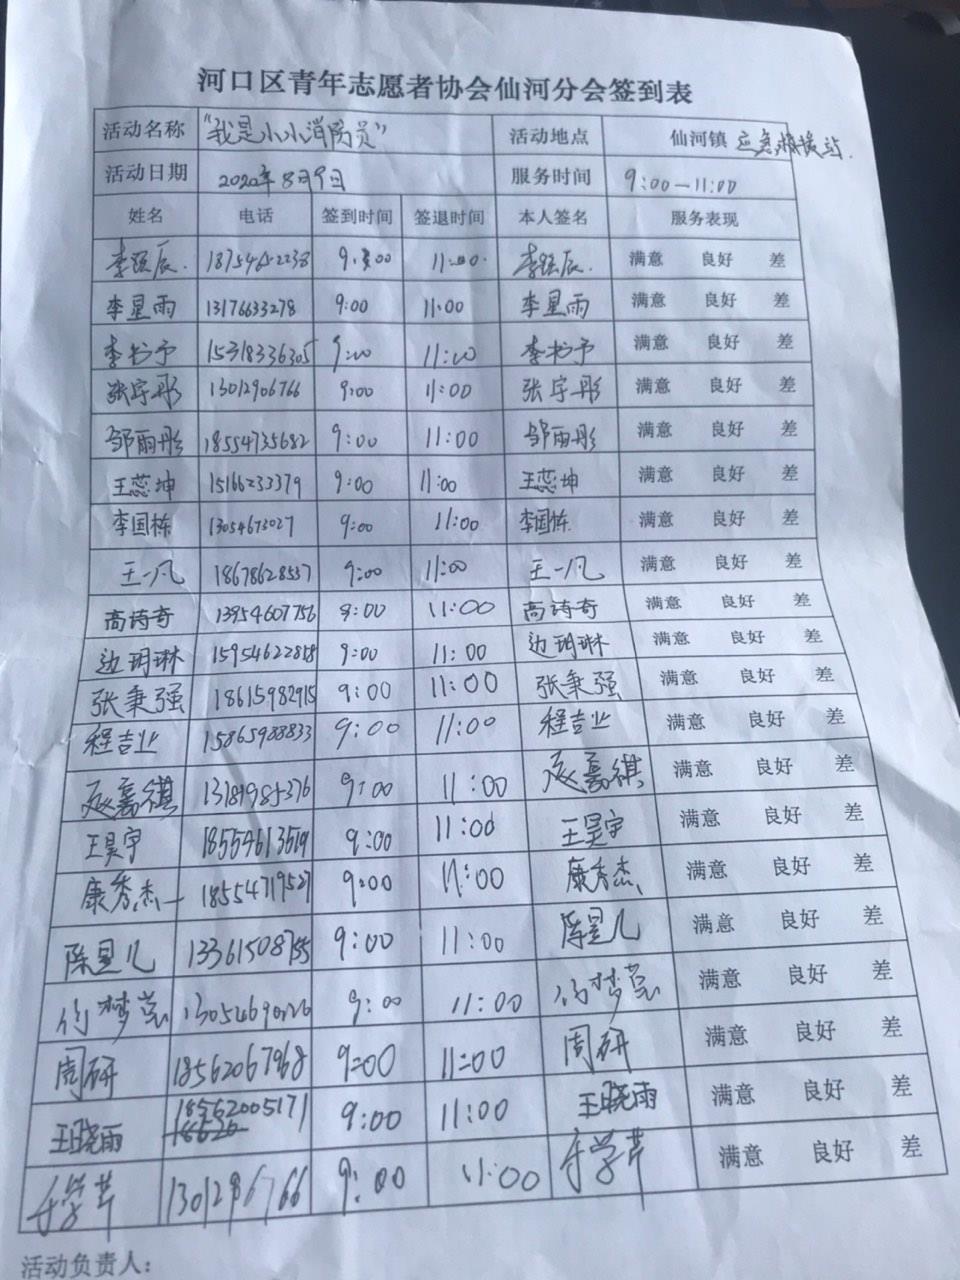 河口区青年志愿者协会仙河分会签到表
活动名称 "我是小小消防员" 活动地点 仙河镇 应急救援站
活动日期 2020年8月9日 服务时间 9:00—11:00
姓名 电话 签到时间 签退时间 本人签名 服务表现
李 辰 18754652238 9:00 11:00 李 辰 满意 良好 差
李星雨 13176633278 9:00 11:00 李星雨 满意 良好 差
李书予 15318336305 9:00 11:00 李书予 满意 良好 差
张宇彤 13012906766 9:00 11:00 张宇彤 满意 良好 差
邹雨彤 18554735682 9:00 11:00 邹雨彤 满意 良好 差
王蕊坤 15166232379 9:00 11:00 王蕊坤 满意 良好 差
李国栋 13054673027 9:00 11:00 李国栋 满意 良好 差
王一凡 18678628537 9:00 11:00 王一凡 满意 良好 差
高诗奇 13954607756 9:00 11:00 高诗奇 满意 良好 差
边玥琳 15954622818 9:00 11:00 边玥琳 满意 良好 差
张秉强 18615982915 9:00 11:00 张秉强 满意 良好 差
程吉业 15865988833 9:00 11:00 程吉业 满意 良好 差
嘉祺 13181985376 9:00 11:00 嘉祺 满意 良好 差
王昊宇 9:00 11:00 王昊宇 满意 良好 差
康秀杰 18554719527 9:00 11:00 康秀杰 满意 良好 差
陈昱儿 13361508755 9:00 11:00 陈昱儿 满意 良好 差
梦 9:00 11:00 梦 满意 良好 差
周研 18562067968 9:00 11:00 周研 满意 良好 差
王晓雨 18562005171 9:00 11:00 王晓雨 满意 良好 差
于学芹 9:00 11:00 于学芹 满意 良好 差
活动负责人：